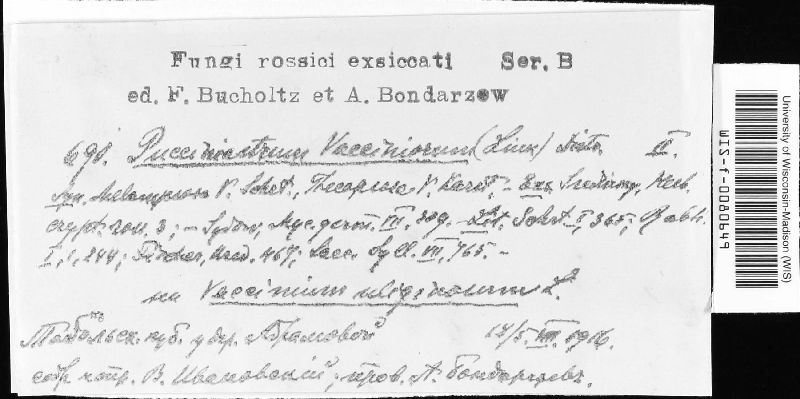 Fungi rossici exsiccati Ser. B
ed. F. Bucholtz et A. Bondarzew
Pucciniastrum Vacciniorum (Link) II.
Syn. Melampsora V. Schröt., Thecopsora V. Karst. – Exs. Herb.
crypt. 3; – Sydow, Myc. germ. – Lit. Schröt. I, 365; Rabh.
I, 1, 244; Fischer, Ured. 467; Sacc. Syll. VII, 765. –
на Vaccinium uliginosum L.
Тобольск. губ. у дер. Абрамовой 17/5. VIII. 1916.
собр. В. Ивановский; пров. А. Бондарцевъ.
University of Wisconsin-Madison (WIS)
WIS-f-0080649